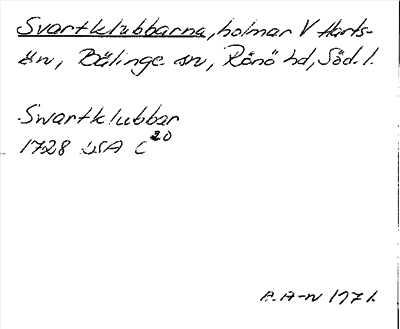 Svartklubbarna, holmar V Harts-
ön, Bälinge sn, Rönö hd, Söd. l.
Swartklubbar
1728 LSA C²⁰
A.A-n 1971.